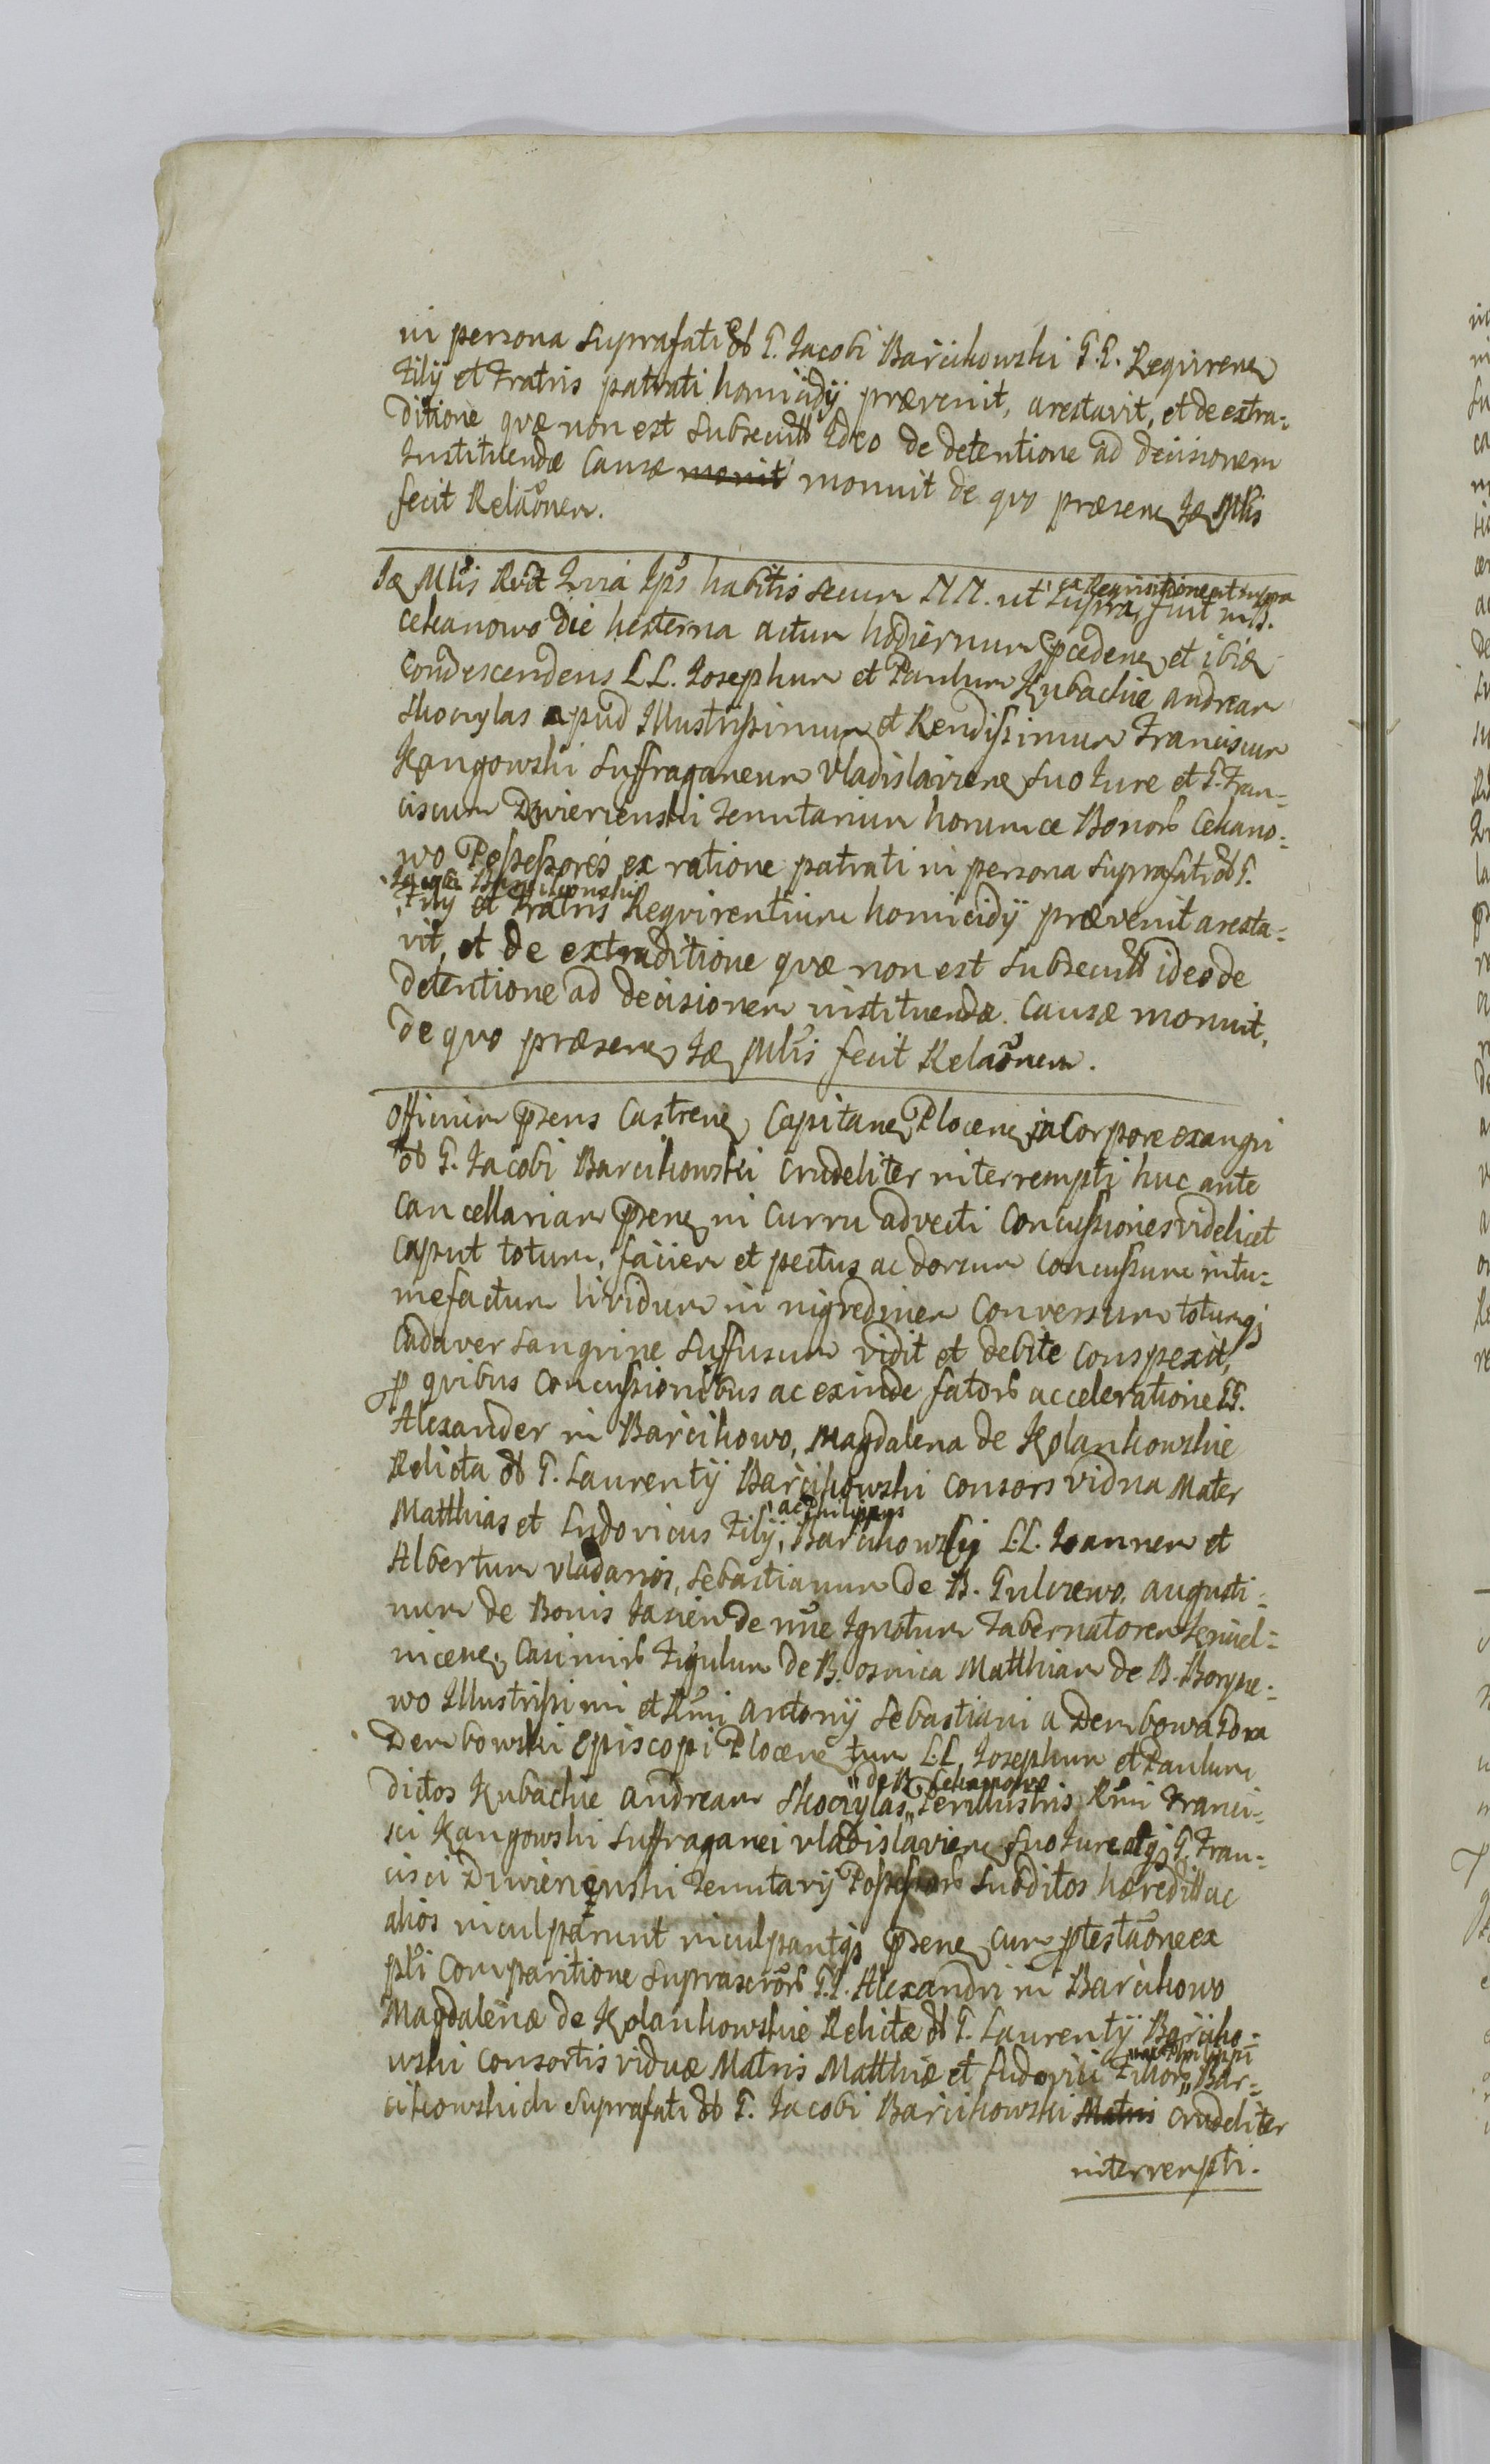 in persona suprafati ol G. Jacobi Barcikowski G.G. Requiren
Filij et Fratris patrati homicidij prævenit, arestavit, et de extra=
ditione quæ non est subsecuta Ideo de detentione ad decisionem
Instituendæ Causæ monit monuit de quo præsens Idem Mlis
fecit Relaõnem.
Idem Mlis Rdt Quia Ips habitis secum N N. ut supra, ex Requisitione ut supra fuit in B.
Cekanowo die hesterna actum hodiernum præceden et ibidem
Condescendens LL. Josephum et Paulum Kubackie andream
Skoczylas apud Illustrissimum et Rendissimum Franciscum
Kanigowski Suffraganeum Vladislavien suo Jure et G. Fran=
ciscum Dzwierienski Tenutarium horumce Bonorum Cekano=
wo Possessores ex ratione patrati in persona suprafati ol G.
Jacobi Barcikowski
Filij et Fratris Requirentium homicidij prævenit aresta=
vit, et de extraditione quæ non est subsecuta ideo de
detentione ad decisionem instituendæ Causæ monuit,
de quo præsens Idem Mlis fecit Relaõnem.
Officium præsens Castren Capitane Plocen in Corpore exangvi
ol G. Jacobi Barcikowski crudeliter interrempti huc ante
Cancellariam præsen in Curru advecti Concussiones videlicet
Caput totum, faciem et pectus ac dorsum concussum intu=
mefactum lividum in nigredinem Conversum totumq
Cadaver sangvine suffusum vidit et debite conspexit,
p quibus Concussionibus ac exinde fatorum acceleratione GG.
Alexander in Barcikowo, Magdalena de Kolankowskie
Relicta ol G. Laurentij Barcikowski consors vidua Mater
Matthias et Ludovicus Filij, ac Philippus Barcikowscij LL. Joannem et
Albertum vladarios, Sebastianum de B. Gulczewo, augusti=
num de Bonis Jasien de nõne Ignotum Tabernatorem
nicene, Casimirum Figulum de B. osnica Matthiam de B. Borysze=
wo Illustrissimi et Rmi Antonij Sebastiani a Dembowa Gora
Dembowski Episcopi Plocen tum LL. Josephum et Paulum
dictos Kubackie andream Skoczylas de B. Cekanowo Perillustris Rmi Franci=
sci Kanigowski Suffraganei vladislavien suo Jure atq G. Fran=
cisci Dzwierienski Tenutarij Possessorum subditos hæredit ac
alios inculparunt inculpantq præsen cum ptestaõne ex
psli Comparitione suprascrorum G.G. Alexandri in Barcikowo
Magdalenæ de Kolankowskie Relictæ ol G. Laurentij Barciko=
wski consortis viduæ Matris Matthiæ et Ludovici Filiorum ac Philippi Bar=
cikowskich suprafati ol G. Jacobi Barcikowski Matris crudeliter
interrempti.